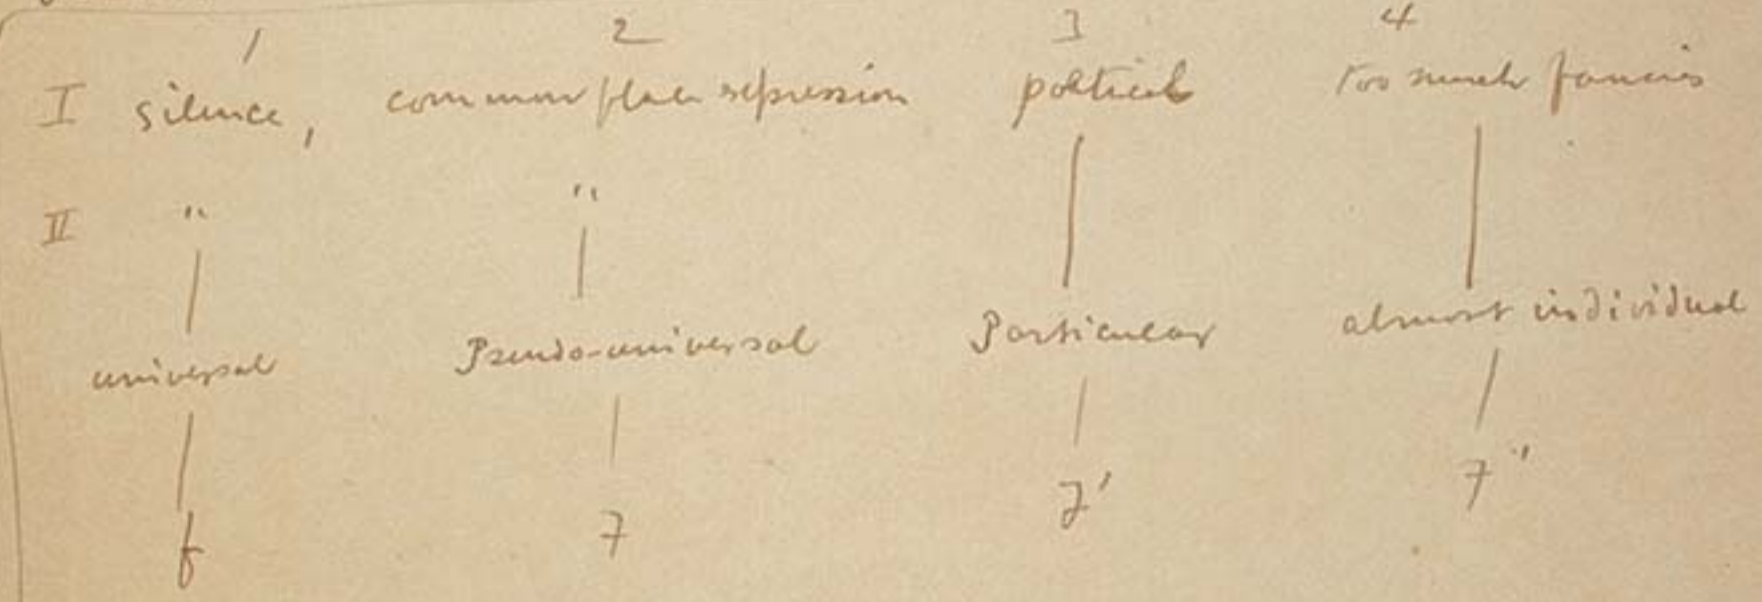 1 2 3 4
I silence, common place repression poetical too much fancies
II " "
universal Pseudo-universal Particular almost individual
f 7 7' 7"